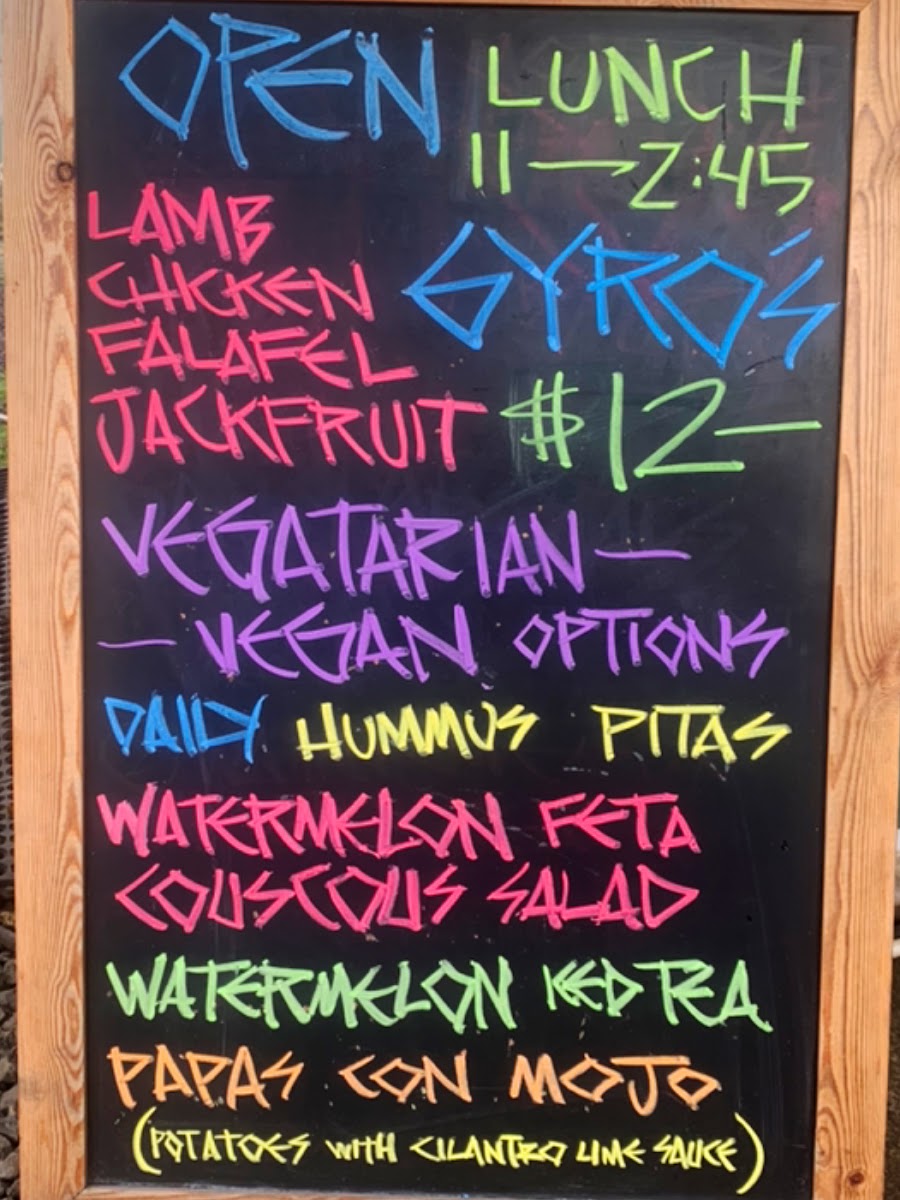 OPEN LUNCH
11—2:45
LAMB
CHICKEN
FALAFEL
JACKFRUIT
GYRO'S
$12—
VEGATARIAN—
—VEGAN OPTIONS
DAILY HUMMUS PITAS
WATERMELON FETA
COUSCOUS SALAD
WATERMELON ICED TEA
PAPAS CON MOJO
(POTATOES WITH CILANTRO LIME SAUCE)